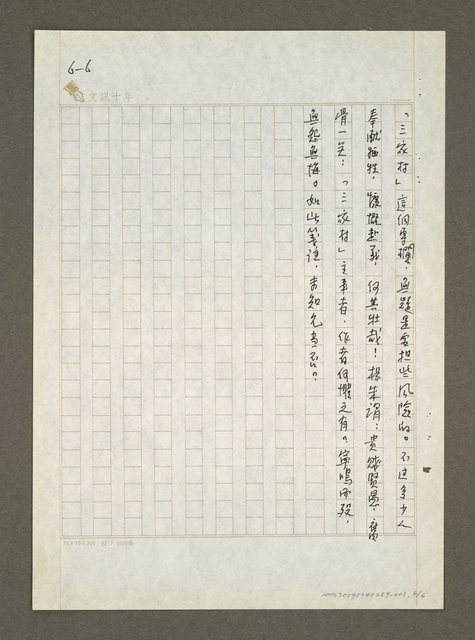 6-6
文訊十年
「三家村」這個專欄，無疑是要担些風險的。不過多少人
奉獻犧牲，慷慨赴義，何其壯哉！楊朱謂：貴賤賢愚，
骨一矣；「三家村」主事者、作者何懼之有。寧鳴而死，
無怨無悔。如此管理，未知允當否？
NMTL20090240289-001, 6/6